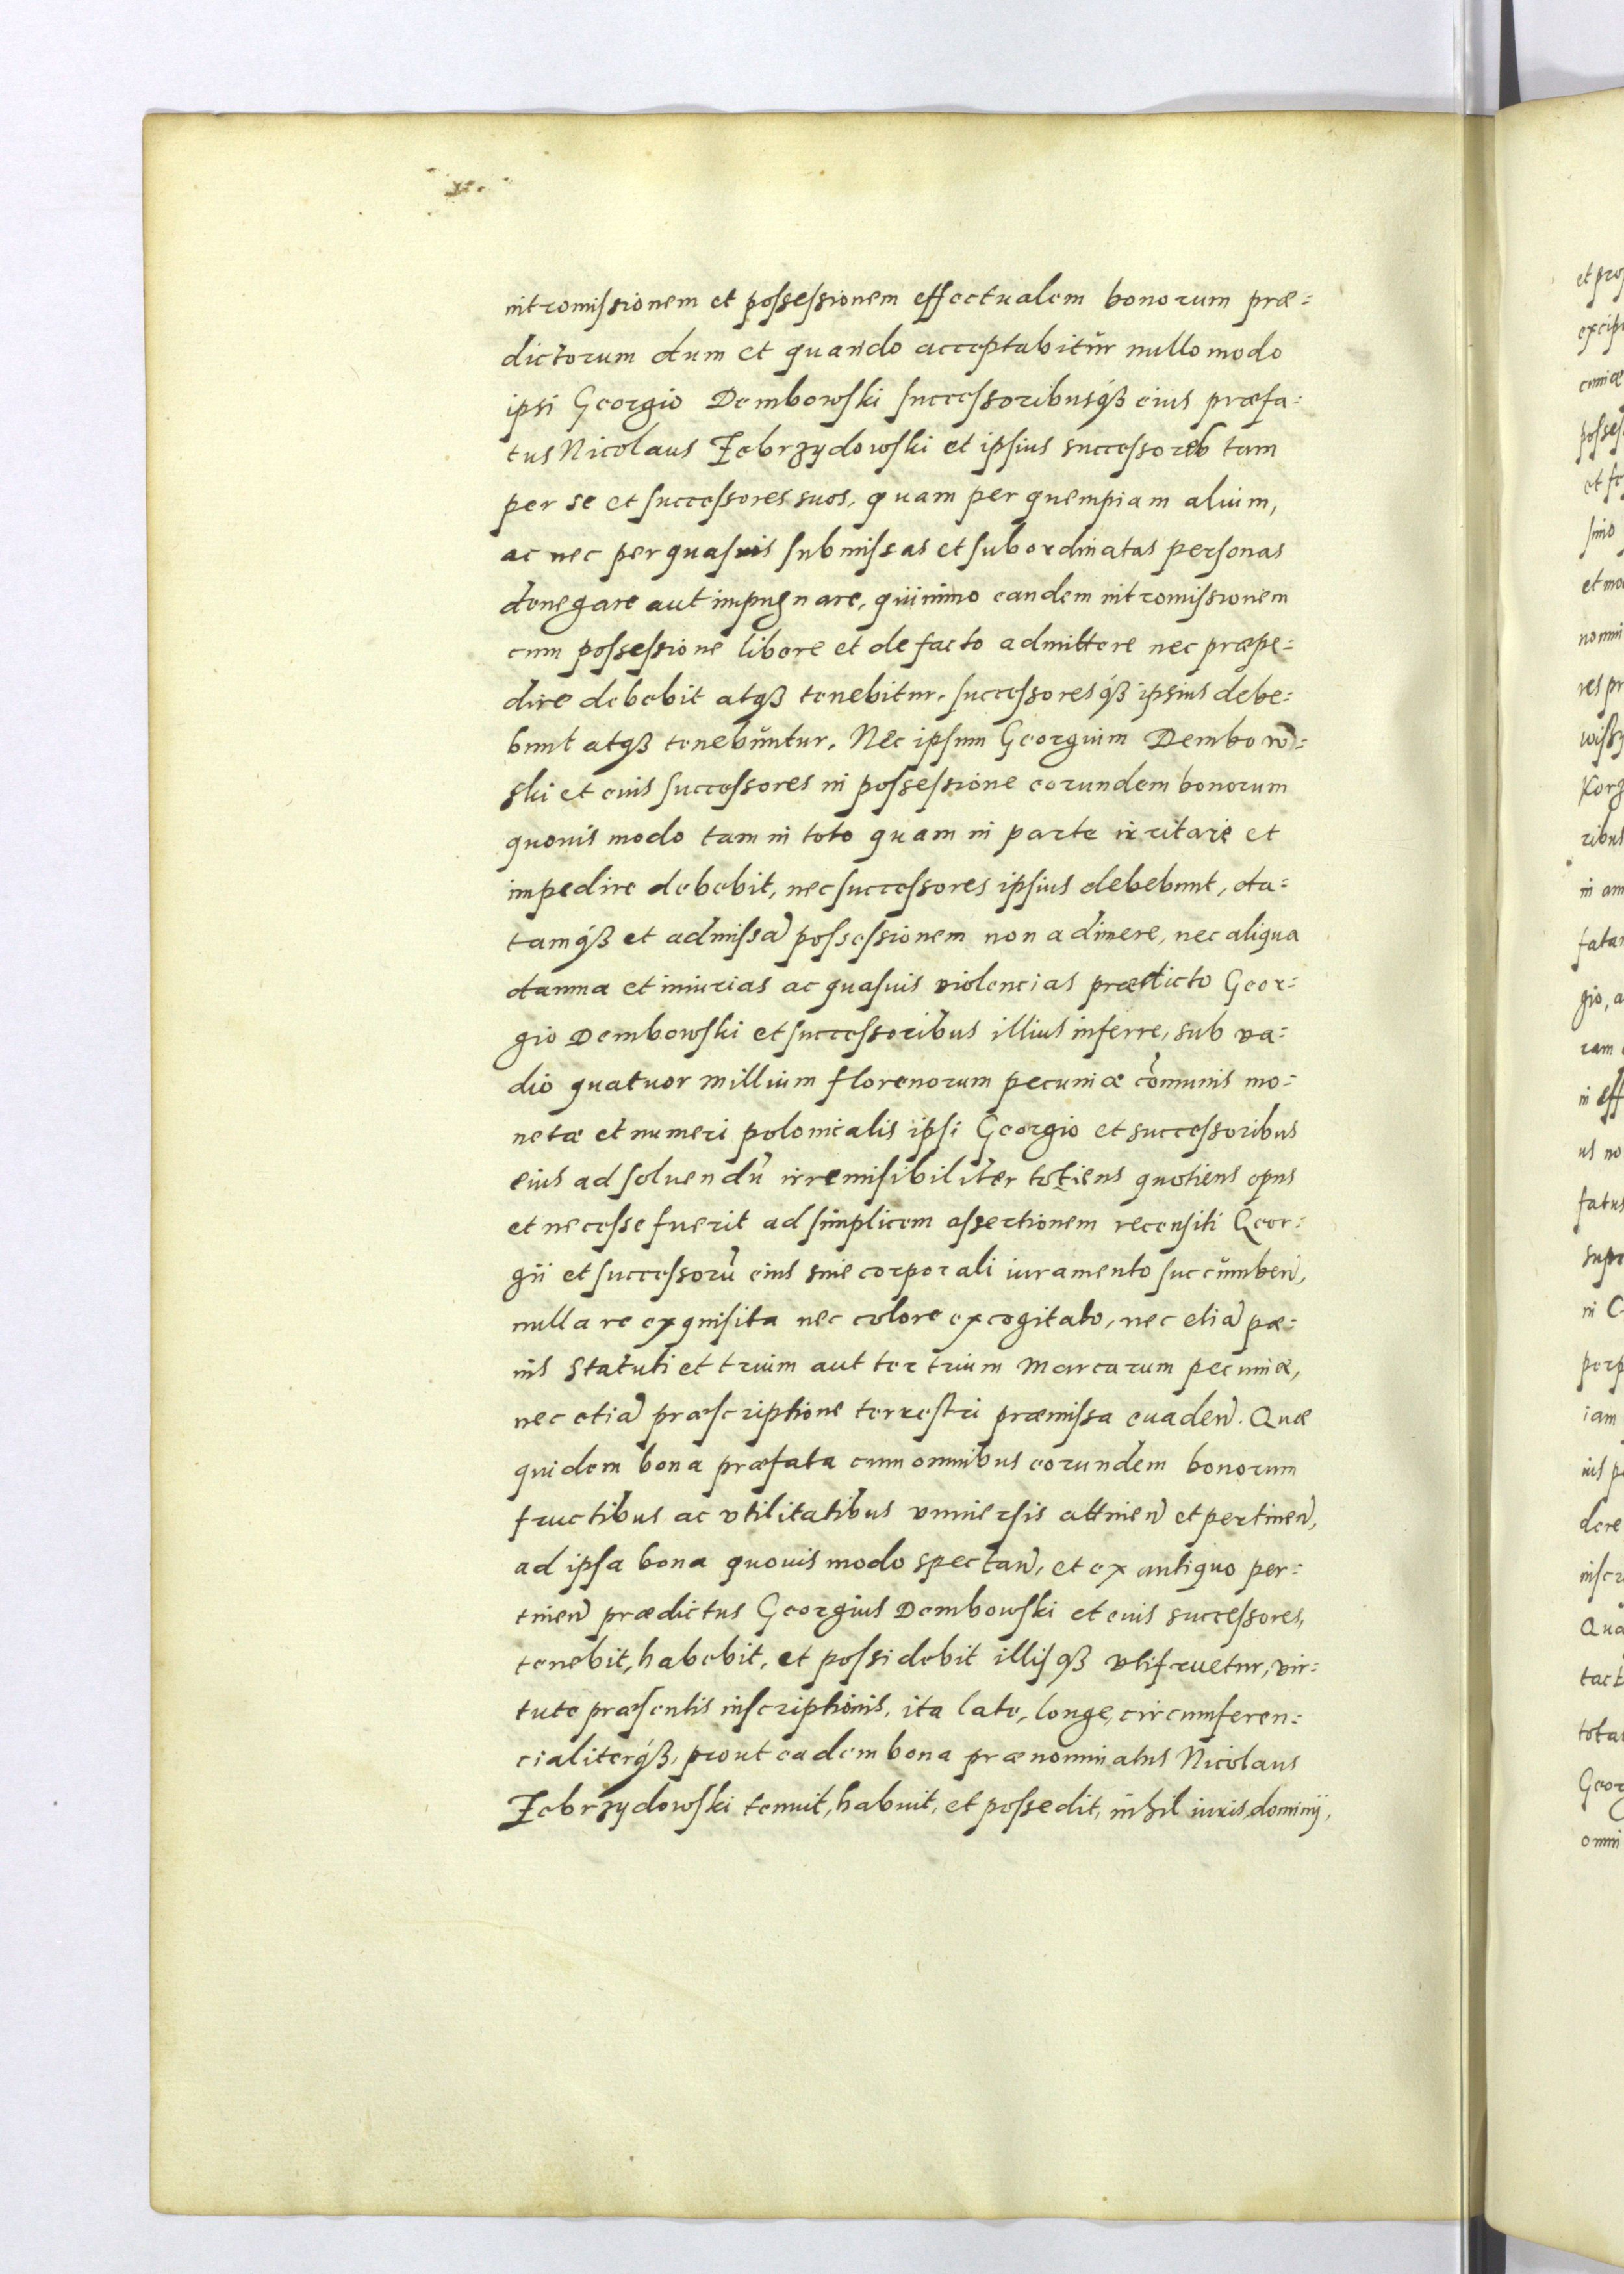 intromissionem et possessionem effectualem bonorum præ=
dictorum dum et quando acceptabitur nullo modo
ipsi Georgio Dembowski successoribusq3 eius præfa=
tus Nicolaus Zebrzydowski et ipsius successores tam
per se et successores suos, quam per quempiam alium,
ac nec per quasuis submissas et subordinatas personas
denegare aut impugnare, quinimo eandem intromissionem
cum possessione libere et de facto admittere nec præpe=
dire debebit atq3 tenebitur, successoresq3 ipsius debe=
bunt atq3 tenebuntur. Nec ipsum Georgium Dembow=
ski et eius successores in possessione eorundem bonorum
quouis modo tam in toto quam in parte irritare et
impedire debebit, nec successores ipsius debebunt, da=
tamq3 et admissã possessionem non adimere, nec aliqua
damna et iniurias ac quasuis violencias prædicto Geor=
gio Dembowski et successoribus illius inferre, sub va=
dio quatuor millium florenorum pecuniæ cõmunis mo=
netæ et numeri polonicalis ipsi Georgio et successoribus
eius ad soluendũ irremisibiliter totiens quotiens opus
et necesse fuerit ad simplicem assertionem recensiti Geor=
gii et successorũ eius sine corporali iuramento succumben̄,
nulla re exquisita nec colore excogitato, nec etiã pæ=
nis statuti et trium aut ter trium marcarum pecuniæ,
nec etiã præscriptione terrestri præmissa euaden̄. Quæ
quidem bona præfata cum omnibus eorundem bonorum
fructibus ac vtilitatibus vniuersis attinen̄ et pertinen̄,
ad ipsa bona quouis modo spectan̄, et ex antiquo per=
tinen̄ prædictus Georgius Dembowski et eius successores,
tenebit, habebit, et possidebit illisq3 vtifruetur, vir=
tute præsentis inscriptionis, ita late, longe, circumferen=
cialiterq3, prout eadem bona prænominatus Nicolaus
Zebrzydowski tenuit, habuit, et possedit, nihil iuris, dominij,